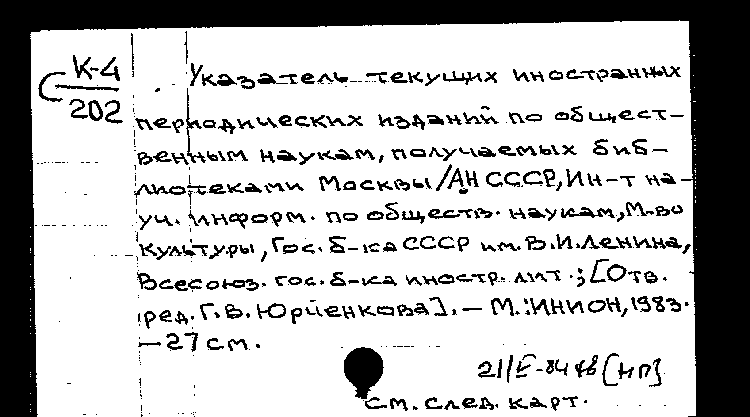 К-4
202
Указатель текущих иностранных
периодических изданий по общест-
венным наукам, получаемых биб-
лиотеками Москвы/АН СССР, Ин-т на-
уч. информ. по обществ. наукам, М-во
культуры, Гос. б-ка СССР им. В.И.Ленина,
Всесоюз. гос. б-ка иностр. лит.; [Отв.
ред. Г.В. Юрченкова]. — М.: ИНИОН, 1983.
— 27 см.
[нп]
см. след. карт.